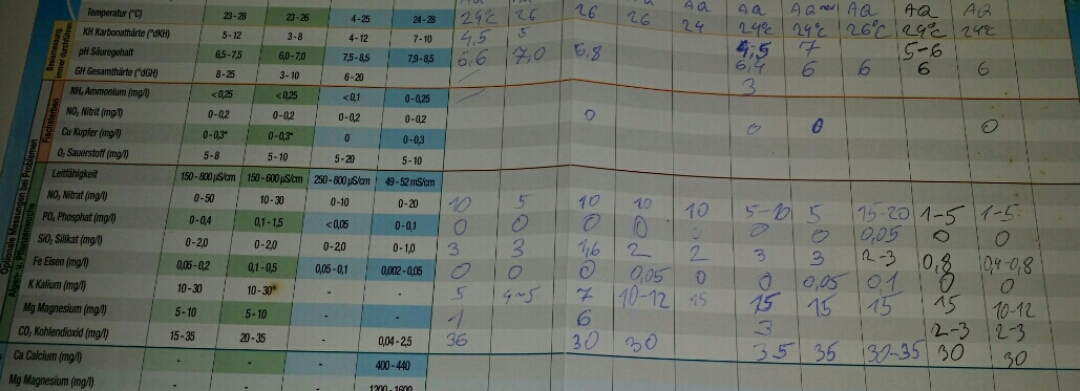 AQ AQ AQ AQ AQ
Temperatur (°C) 23 - 28 23 - 26 4 - 25 24 - 28 24°C 26 26 26 24 24°C 24°C 26°C 24°C 24°C
KH Karbonathärte (°dKH) 5 - 12 3 - 8 4 - 12 7 - 10 4,5 5 4,5 7 5-6
pH Säuregehalt 6,5 - 7,5 6,0 - 7,0 7,5 - 8,5 7,9 - 8,5 6,6 7,0 6,8 6 6 6 6
GH Gesamthärte (°dGH) 8 - 25 3 - 10 6 - 20 3
NH₄ Ammonium (mg/l) < 0,25 < 0,25 < 0,1 0 - 0,25
NO₂ Nitrit (mg/l) 0 - 0,2 0 - 0,2 0 - 0,2 0 - 0,2 0 0 0 0
Cu Kupfer (mg/l) 0 - 0,3* 0 - 0,3* 0 0 - 0,3
O₂ Sauerstoff (mg/l) 5 - 8 5 - 10 5 - 20 5 - 10
Leitfähigkeit 150 - 800 µS/cm 150 - 600 µS/cm 250 - 800 µS/cm 49 - 52 mS/cm
NO₃ Nitrat (mg/l) 0 - 50 10 - 30 0 - 10 0 - 20 10 5 10 10 10 5-10 5 15-20 1-5 1-5
PO₄ Phosphat (mg/l) 0 - 0,4 0,1 - 1,5 < 0,05 0 - 0,1 0 0 0 0 0 0 0 0,05 0 0
SiO₂ Silikat (mg/l) 0 - 2,0 0 - 2,0 0 - 2,0 0 - 1,0 3 3 1,6 2 2 3 3 2-3 0,8 0,4-0,8
Fe Eisen (mg/l) 0,05 - 0,2 0,1 - 0,5 0,05 - 0,1 0,002 - 0,05 0 0 0 0,05 0 0 0,05 0,1 0 0
K Kalium (mg/l) 10 - 30 10 - 30* - - 5 4-5 7 10-12 15 15 15 15 15 10-12
Mg Magnesium (mg/l) 5 - 10 5 - 10 - - 1 6 3 2-3 2-3
CO₂ Kohlendioxid (mg/l) 15 - 35 20 - 35 - 0,04 - 2,5 36 30 30 35 35 30-35 30 30
Ca Calcium (mg/l) - - - 400 - 440
Mg Magnesium (mg/l) 1200 - 1600
Basismessung immer durchführen
Fischsterben
Optionale Messungen bei Problemen